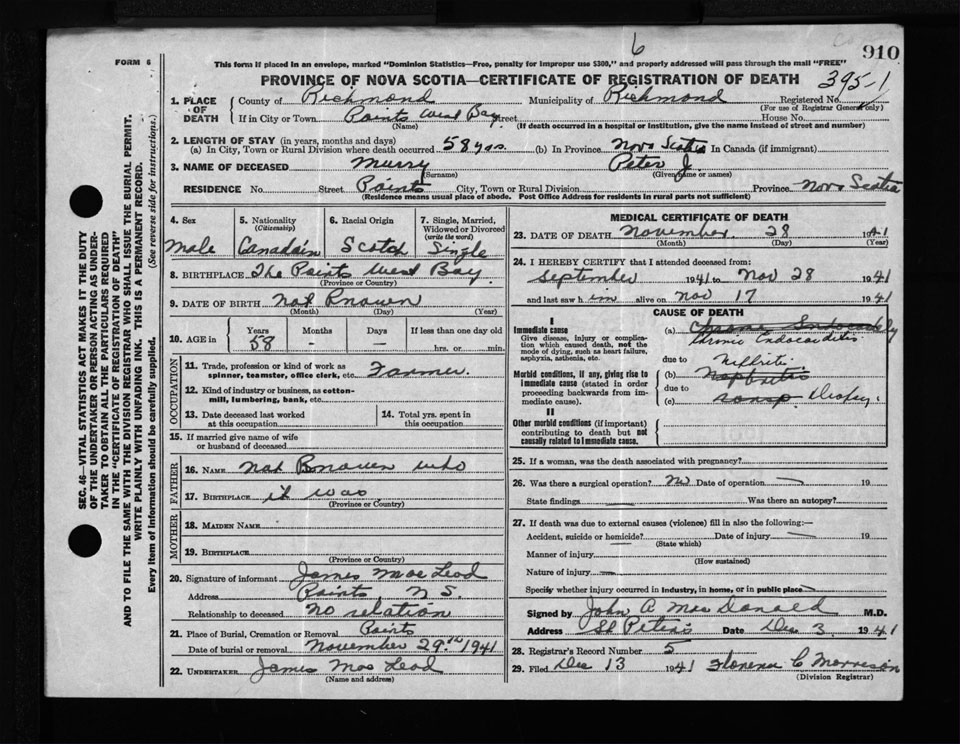 6
910
FORM 6
This form if placed in an envelope, marked "Dominion Statistics—Free, penalty for improper use $300," and properly addressed will pass through the mail "FREE"
PROVINCE OF NOVA SCOTIA—CERTIFICATE OF REGISTRATION OF DEATH
395-1
1. PLACE OF DEATH County of Richmond Municipality of Richmond Registered No.
(For use of Registrar General only)
If in City or Town Points West Bay Street House No.
(Name) (If death occurred in a hospital or institution, give the name instead of street and number)
2. LENGTH OF STAY (in years, months and days)
(a) In City, Town or Rural Division where death occurred 58 yrs. (b) In Province Nova Scotia In Canada (if immigrant)
3. NAME OF DECEASED Murry Peter J.
(Surname) (Given name or names)
RESIDENCE No Street Points City, Town or Rural Division Province Nova Scotia
(Residence means usual place of abode. Post Office Address for residents in rural parts not sufficient)
SEC. 46—VITAL STATISTICS ACT MAKES IT THE DUTY
OF THE UNDERTAKER OR PERSON ACTING AS UNDERTAKER TO OBTAIN ALL THE PARTICULARS REQUIRED
IN THE "CERTIFICATE OF REGISTRATION OF DEATH"
AND TO FILE THE SAME WITH THE DIVISION REGISTRAR WHO SHALL ISSUE THE BURIAL PERMIT.
WRITE PLAINLY WITH UNFADING INK. THIS IS A PERMANENT RECORD.
Every item of Information should be carefully supplied. (See reverse side for instructions.)
4. Sex 5. Nationality (Citizenship) 6. Racial Origin 7. Single, Married, Widowed or Divorced (write the word)
Male Canadain Scotch Single
8. BIRTHPLACE The Points West Bay
(Province or Country)
9. DATE OF BIRTH Not Known
(Month) (Day) (Year)
10. AGE in Years Months Days If less than one day old
58 - - hrs. or min.
OCCUPATION
11. Trade, profession or kind of work as spinner, teamster, office clerk, etc. Farmer.
12. Kind of industry or business, as cotton-mill, lumbering, bank, etc.
13. Date deceased last worked at this occupation 14. Total yrs. spent in this occupation
15. If married give name of wife or husband of deceased
FATHER
16. NAME Not Known who
17. BIRTHPLACE it was
(Province or Country)
MOTHER
18. MAIDEN NAME
19. BIRTHPLACE
(Province or Country)
20. Signature of informant James Mac Leod
Address Points, N S.
Relationship to deceased No relation
21. Place of Burial, Cremation or Removal Points
Date of burial or removal November 29.th 1941
22. UNDERTAKER James Mac Leod
(Name and address)
MEDICAL CERTIFICATE OF DEATH
23. DATE OF DEATH November 28 1941
(Month) (Day)
24. I HEREBY CERTIFY that I attended deceased from:
September 1941 to Nov 28 1941
and last saw h im alive on Nov 17 1941
CAUSE OF DEATH
I
Immediate cause
Give disease, injury or complication which caused death, not the mode of dying, such as heart failure, asphyxia, asthenia, etc.
(a)
Chronic Endocarditis
due to
Morbid conditions, if any, giving rise to immediate cause (stated in order proceeding backwards from immediate cause).
Nefbritis
(b) Nephritis
due to
(c) Dropsy.
II
Other morbid conditions (if important) contributing to death but not causally related to immediate cause.
25. If a woman, was the death associated with pregnancy?
26. Was there a surgical operation? No Date of operation — 19
State findings Was there an autopsy?
27. If death was due to external causes (violence) fill in also the following:—
Accident, suicide or homicide? — Date of injury — 19
(State which)
Manner of injury
(How sustained)
Nature of injury —
Specify whether injury occurred in industry, in home, or in public place —
Signed by John A Mac Donald M.D.
Address St Peters Date Dec 3 1941
28. Registrar's Record Number 5
29. Filed Dec 13 1941 Florence C Morrison
(Division Registrar)